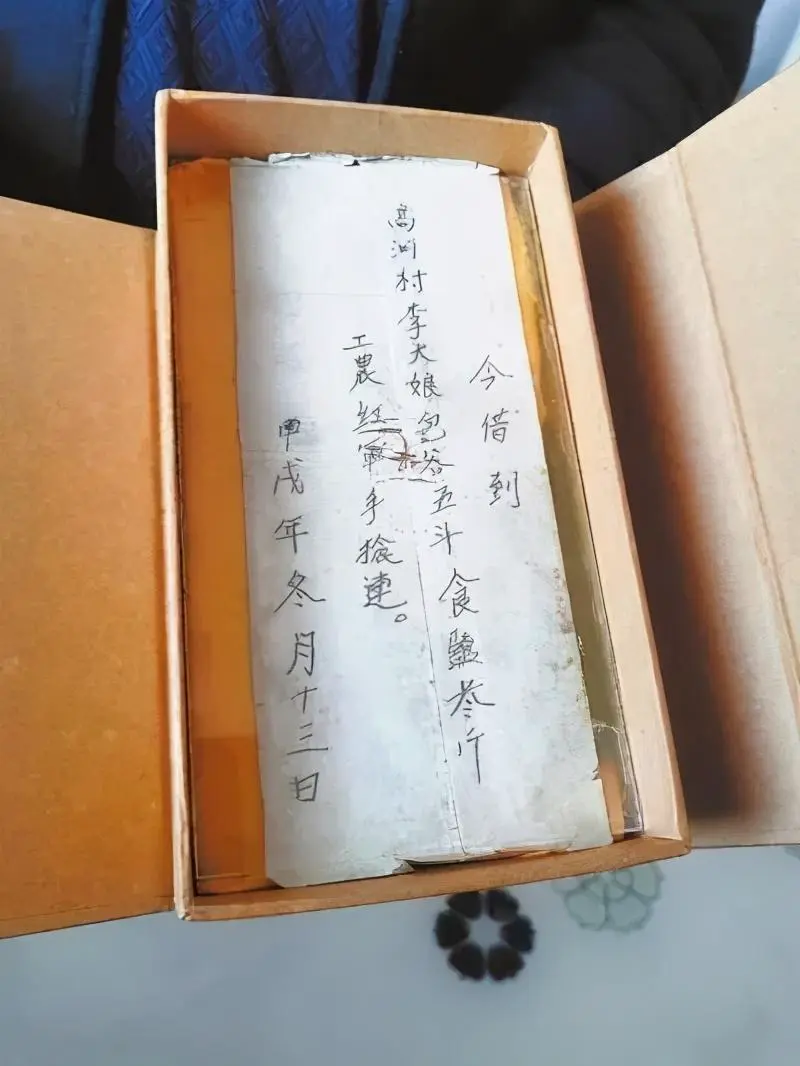 今借到
高洲村李大娘包谷五斗食鹽叁斤
工農红軍手搶連。
甲戌年冬月十三日